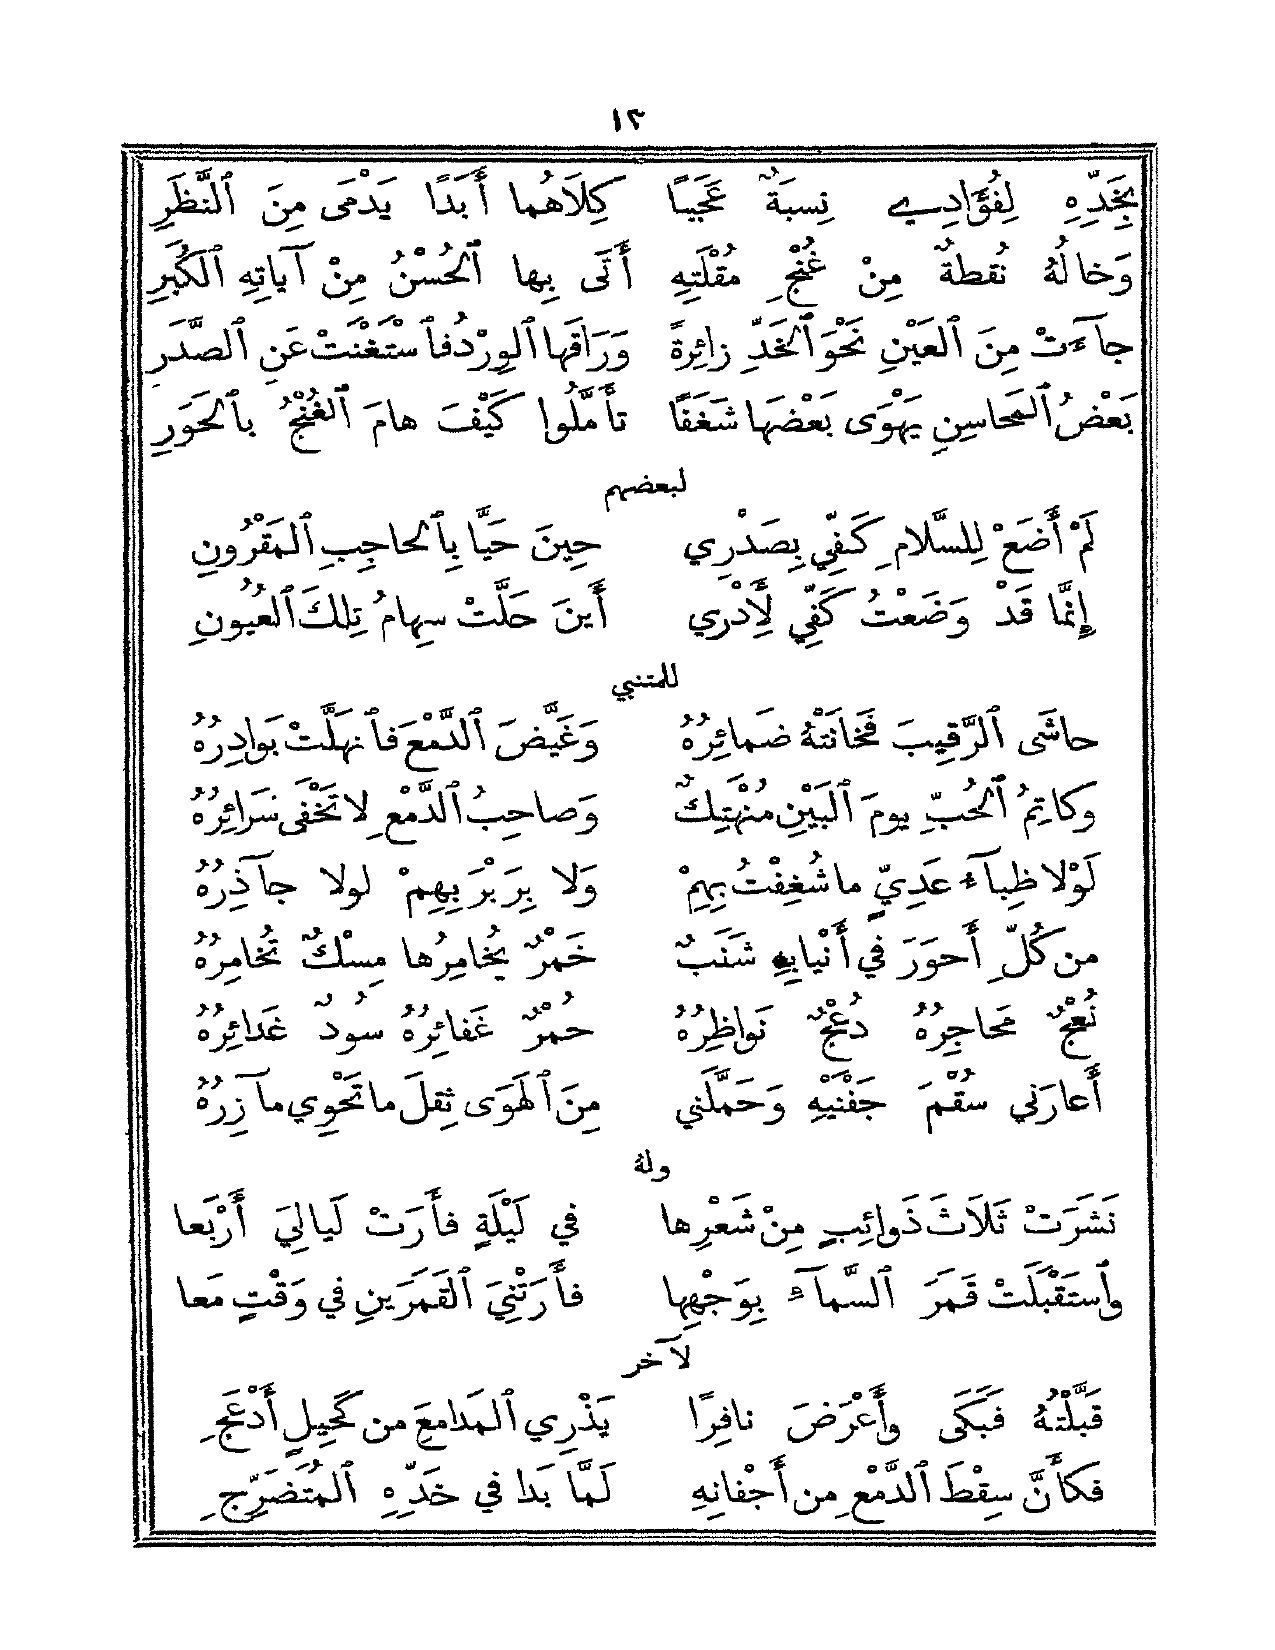 ١٣
بِخَدِّهِ لِفُؤَادِي نِسبَةٌ عَجَبًا كِلَاهُما أَبَدًا يَدْمَى مِنَ ٱلنَّظَرِ
وَخالُهُ نُقطةٌ مِنْ غُنْجِ مُقْلَتِهِ أَتَى بِها ٱلحُسْنُ مِنْ آياتِهِ ٱلكُبَرِ
جاءَتْ مِنَ ٱلعَيْنِ نَحْوَ ٱلخَدِّ زائِرةً وَرَاقَها ٱلوِرْدُ فٱستَغْنَتْ عَنِ ٱلصَّدَرِ
بَعْضُ ٱلمَحاسِنِ يَهْوَى بَعْضَها شَغَفًا تأَمَّلُوا كَيْفَ هامَ ٱلغُنْجُ بٱلحَوَرِ
لبعضهم
لَمْ أَضَعْ لِلسَّلامِ كَفِّي بِصَدْرِي حِينَ حَيَّا بِٱلحاجِبِ ٱلمَقْرُونِ
إِنَّما قَدْ وَضَعْتُ كَفِّي لِأَدْرِي أَينَ حَلَّتْ سِهامُ تِلكَ ٱلعُيُونِ
للمتنبي
حاشَى ٱلرَّقِيبَ فَخانَتْهُ ضَمائِرُهُ وَغَيَّضَ ٱلدَّمْعَ فٱنهَلَّتْ بَوادِرُهُ
وكاتِمُ ٱلحُبِّ يومَ ٱلبَيْنِ مُنْهَتِكٌ وَصاحِبُ ٱلدَّمْعِ لا تَخْفَى سَرائِرُهُ
لَوْلا ظِبآءُ عَدِيٍّ ما شُغِفْتُ بِهِمْ وَلا بِرَبْرَبِهِمْ لولا جآذِرُهُ
من كُلِّ أَحوَرَ في أَنْيابِهِ شَنَبٌ خَمْرٌ يُخامِرُها مِسْكٌ تُخامِرُهُ
نُعْجٌ مَحاجِرُهُ دُعْجٌ نَواظِرُهُ حُمْرٌ غَفائِرُهُ سُودٌ غَدائِرُهُ
أَعارَني سُقْمَ جَفْنَيْهِ وَحَمَّلَني مِنَ ٱلهَوَى ثِقلَ ما تَحْوِي مآزِرُهُ
ولهُ
نَشَرَتْ ثَلَاثَ ذَوائِبٍ مِنْ شَعْرِها في لَيْلَةٍ فأَرَتْ لَيالِيَ أَرْبَعا
وٱستَقْبَلَتْ قَمَرَ ٱلسَّمآءِ بِوَجْهِها فأَرَتْنِيَ ٱلقَمَرَينِ في وَقْتٍ مَعا
لآخر
قبَّلْتُهُ فَبَكَى وأَعْرَضَ نافِرًا يَذْرِي ٱلمَدامِعَ من كَحِيلٍ أَدْعَجِ
فكأَنَّ سِقْطَ ٱلدَّمْعِ من أَجْفانِهِ لَمَّا بَدا في خَدِّهِ ٱلمُتَضَرِّجِ